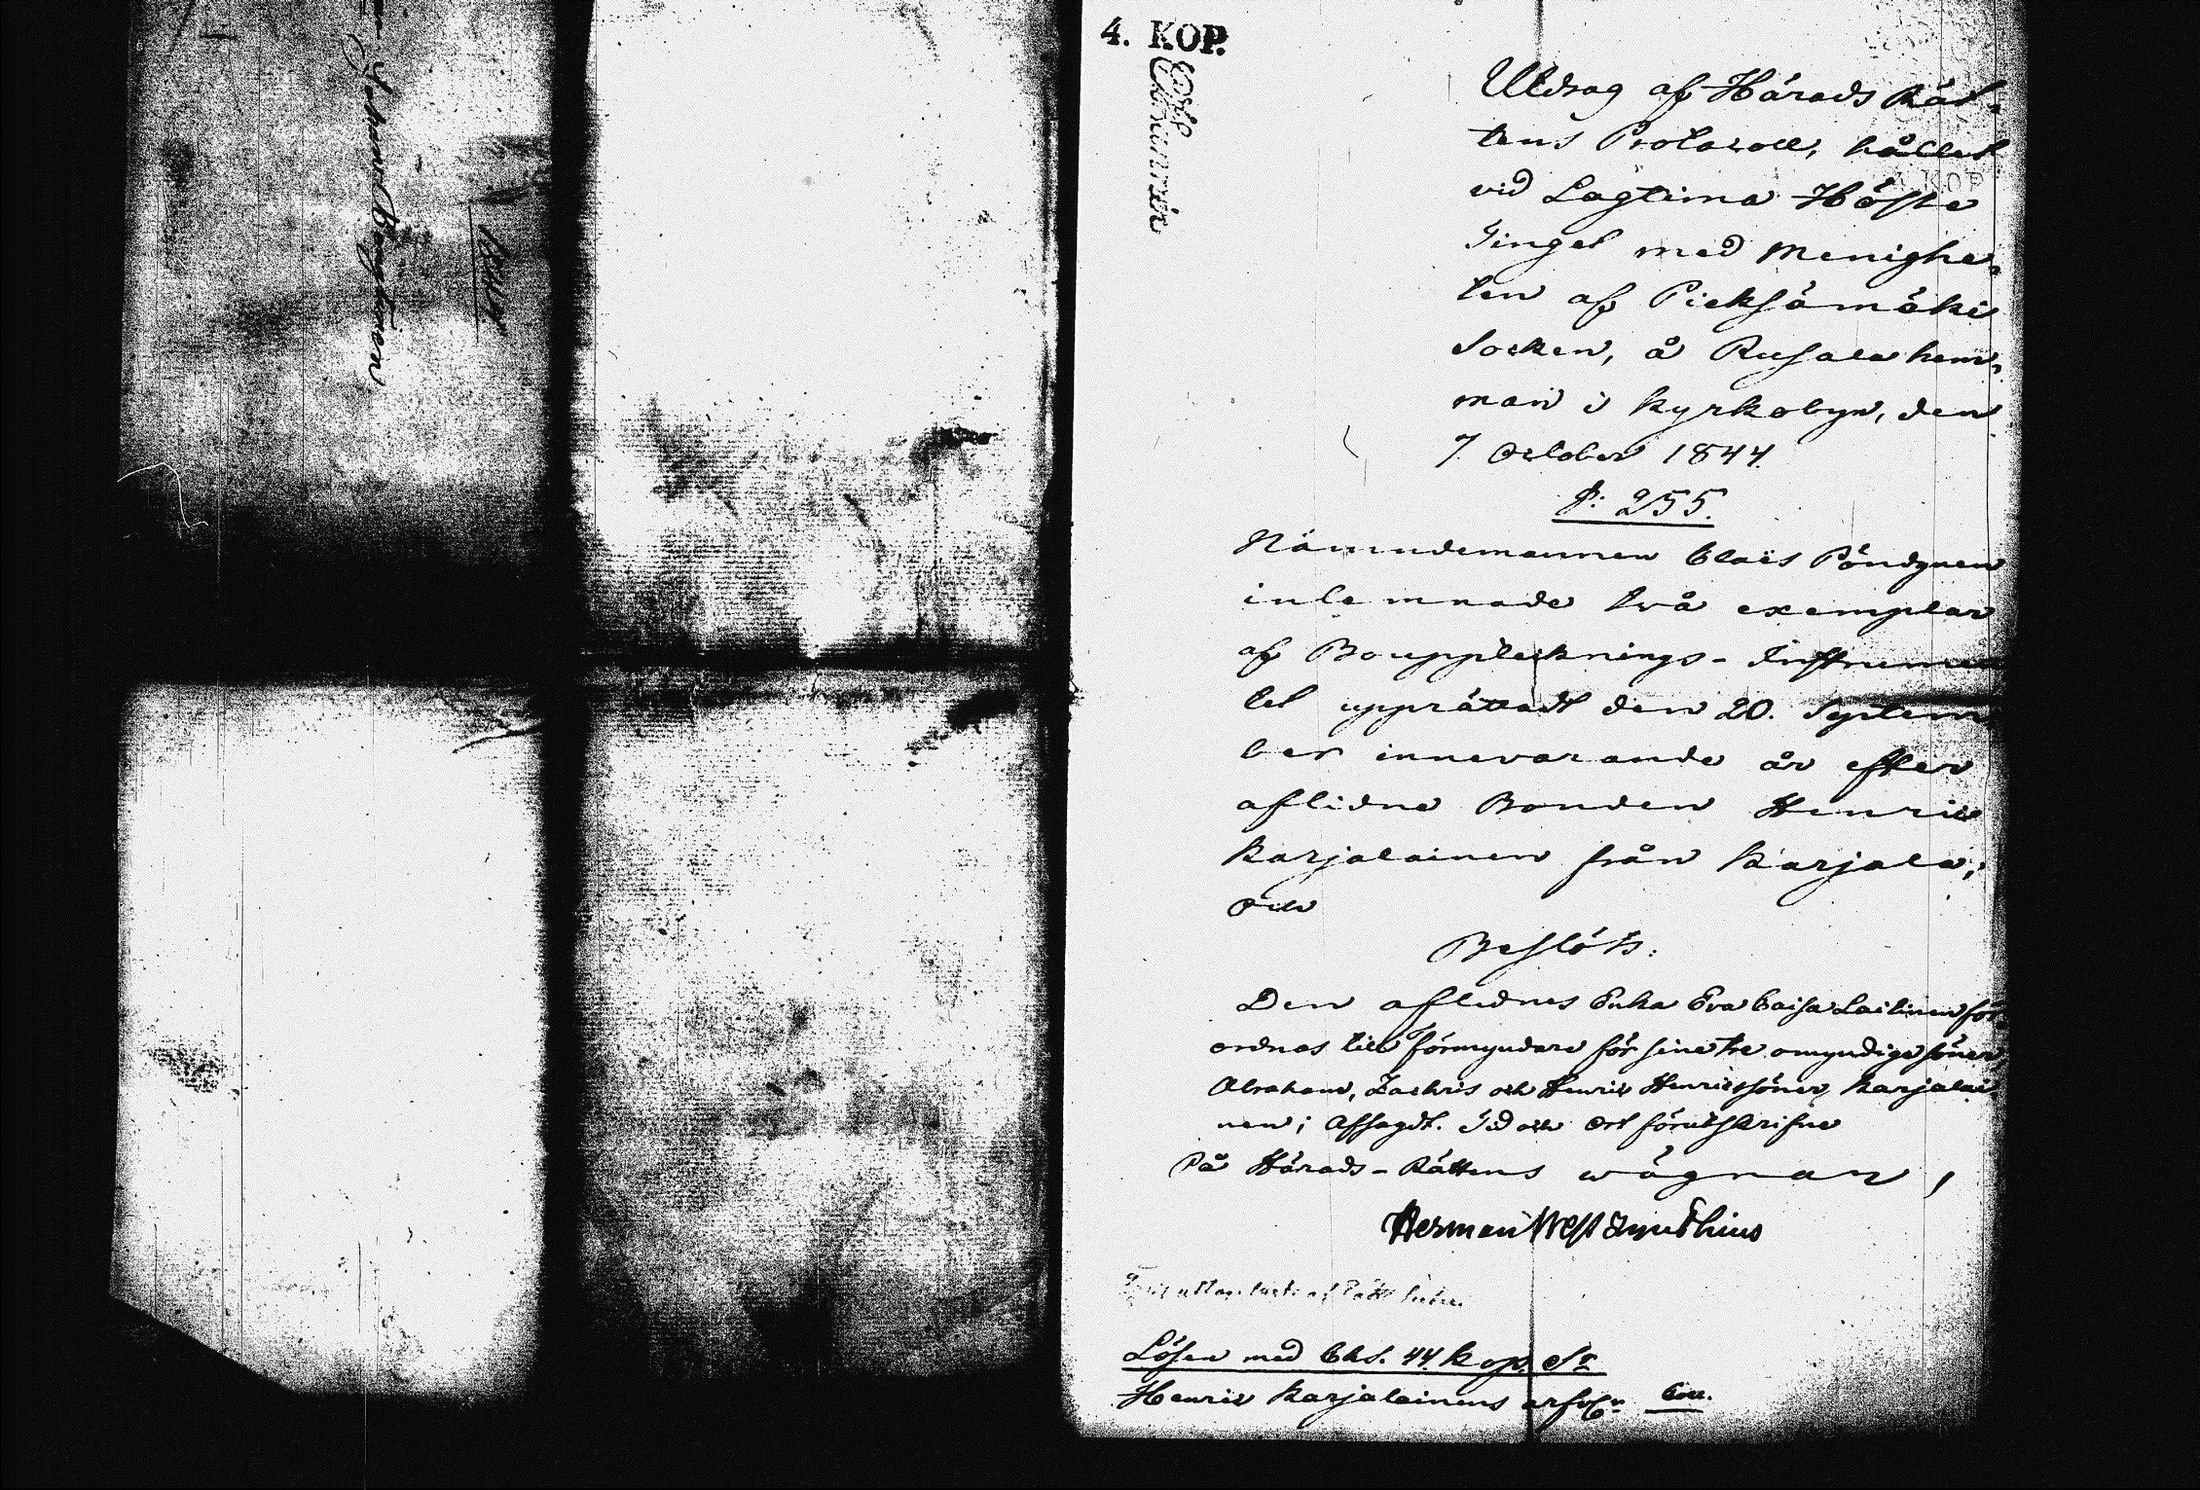 Johan Bengtinen
4. KOP.
A KOP
Utdrag af Härads Rät-
tens Protocoll, hållet
vid Lagtima Höste
Tinget med Menighe-
ten af Pieksämäki
Socken, å Rusala hem-
man i Kyrkobyn, den
7 October 1844.
§. 255.
Nämndemannen Claës Pöndynen
inlemnade två exemplar
af Boupptecknings-Instrumen
tet upprättadt den 20. Septem
ber innevarande år efter
aflidne Bonden Henric
Karjalainen från Karjala;
och
Beslöts:
Den aflidnes Enka Eva Caisa Laitinen för
ordnas till Förmyndare för sine tre omyndige söner,
Abraham, Zachris och Henric Henricssöner Karjalai
nen; Afsagdt. Tid och Ort förutskrifne
På Härads-Rättens wägnar,
Herman Westzynthius
Lösen med Ch. 44 kop. Sr
Henric Karjalainens arfvr Coll.